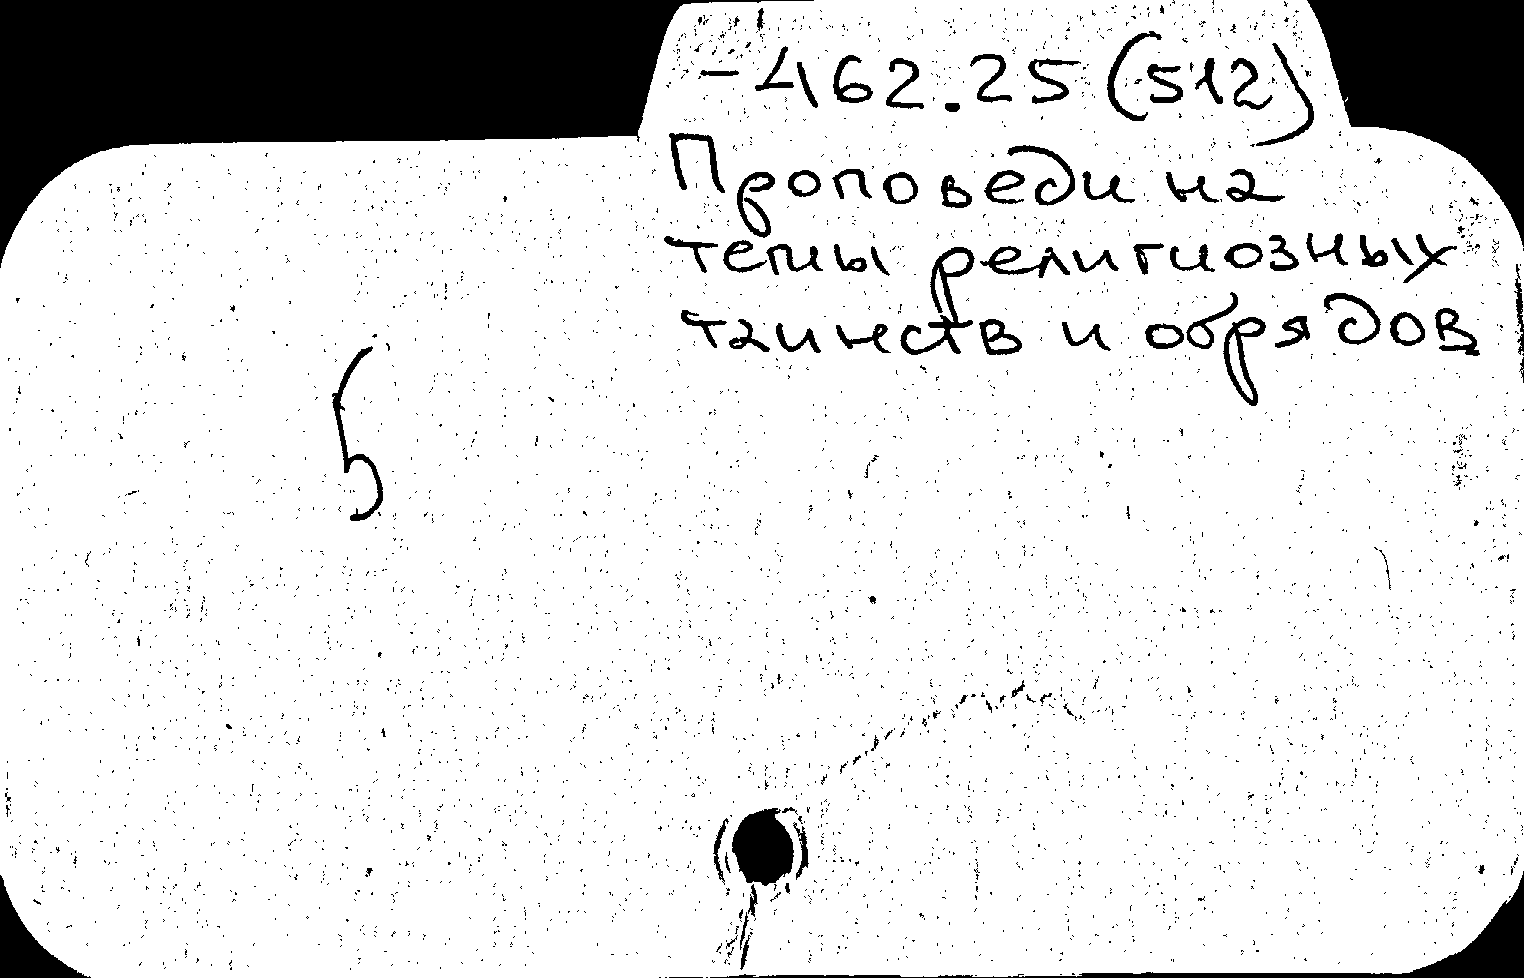 -462.25 (512)
Проповеди на
темы религиозных
таинств и обрядов